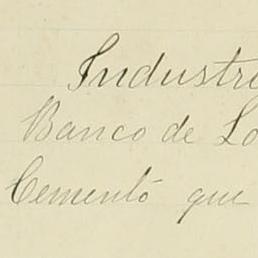 Industri
Banco de Lo
Cementó que